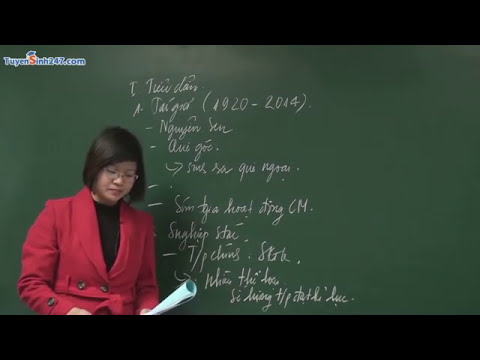 TuyenSinh247.com
I. Tiểu dẫn
1. Tác giả (1920 - 2014).
- Nguyễn Sen
- Quê gốc.
↳ sinh ra quê ngoại.
- .
- Sớm tgia hoạt động CM.
Snghiệp stác
- T/p chính. Sgk.
↳ nhiều thể loại
Số lượng t/p đạt kỉ lục.